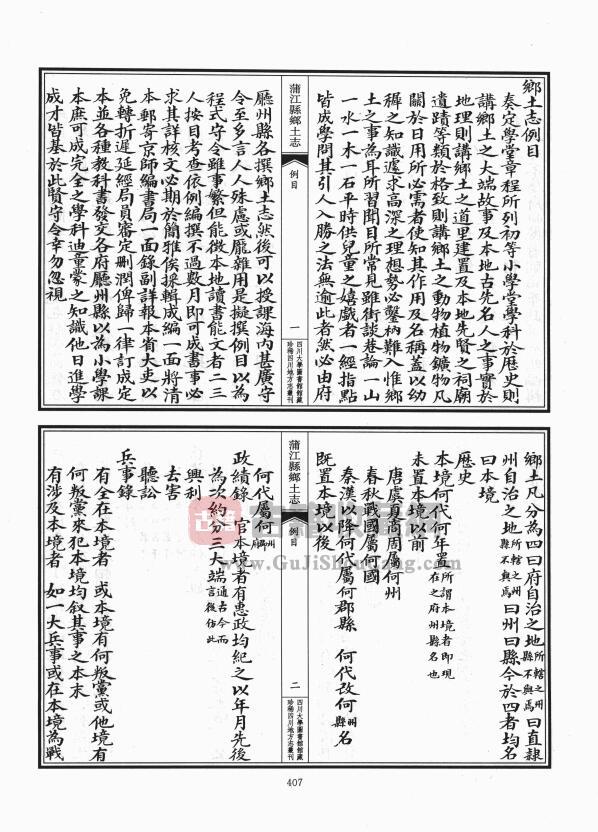 鄉土志例目
奏定學堂章程所列初等小學堂學科於歷史則
講鄉土之大端故事及本地古先名人之事實於
地理則講鄉土之道里建置及本地先賢之祠廟
遺蹟等類於格致則講鄉土之動物植物鑛物凡
關於日用所必需者使知其作用及名稱蓋以幼
穉之知識遽求高深之理想勢必鑿枘難入惟鄉
土之事為耳所習聞目所常見雖街談巷論一山
一水一木一石平時供兒童之嬉戲者一經指點
皆成學問其引人入勝之法無逾此者然必由府
蒲江縣鄉土志
例目
一
四川大學圖書館館藏
珍稀四川地方志叢刊
廳州縣各撰鄉土志然後可以授課海內甚廣守
令至多言人人殊慮或龐雜用是擬撰例目以為
程式守令雖事繁但能徵本地讀書能文者二三
人按目考查依例編撰不過數月即可成書事必
求其詳核文必期於簡雅俟採輯成編一面將清
本郵寄京師編書局一面錄副詳報本省大吏以
免轉折遲延經局員審定刪潤俾歸一律訂成定
本並各種教科書發交各府廳州縣以為小學課
本庶可成完全之學科迪童蒙之知識他日進學
成才皆基於此賢守令幸勿忽視
鄉土凡分為四曰府自治之地所轄之州縣不與焉曰直隸
州自治之地所轄之縣不與焉曰州曰縣今於四者均名
曰本境
歷史
本境何代何年置所謂本境者即現在之府州縣名也
未置本境以前
唐虞夏商周屬何州
春秋戰國屬何國
秦漢降何代屬何郡縣 何代改何州縣名
既置本境以後
蒲江縣鄉土志
例目
二
四川大學圖書館館藏
珍稀四川地方志叢刊
何代屬何州郡府
政績錄 官本境者有惠政均紀之以年月先後
為次約分三大端通古今而言後仿此
興利
去害
聽訟
兵事錄
有全在本境者 或本境有何叛黨或他境有
何叛黨來犯本境均叙其事之本末
有涉及本境者 如一大兵事或在本境為戰
古籍
www.GuJiShuFang.com
407